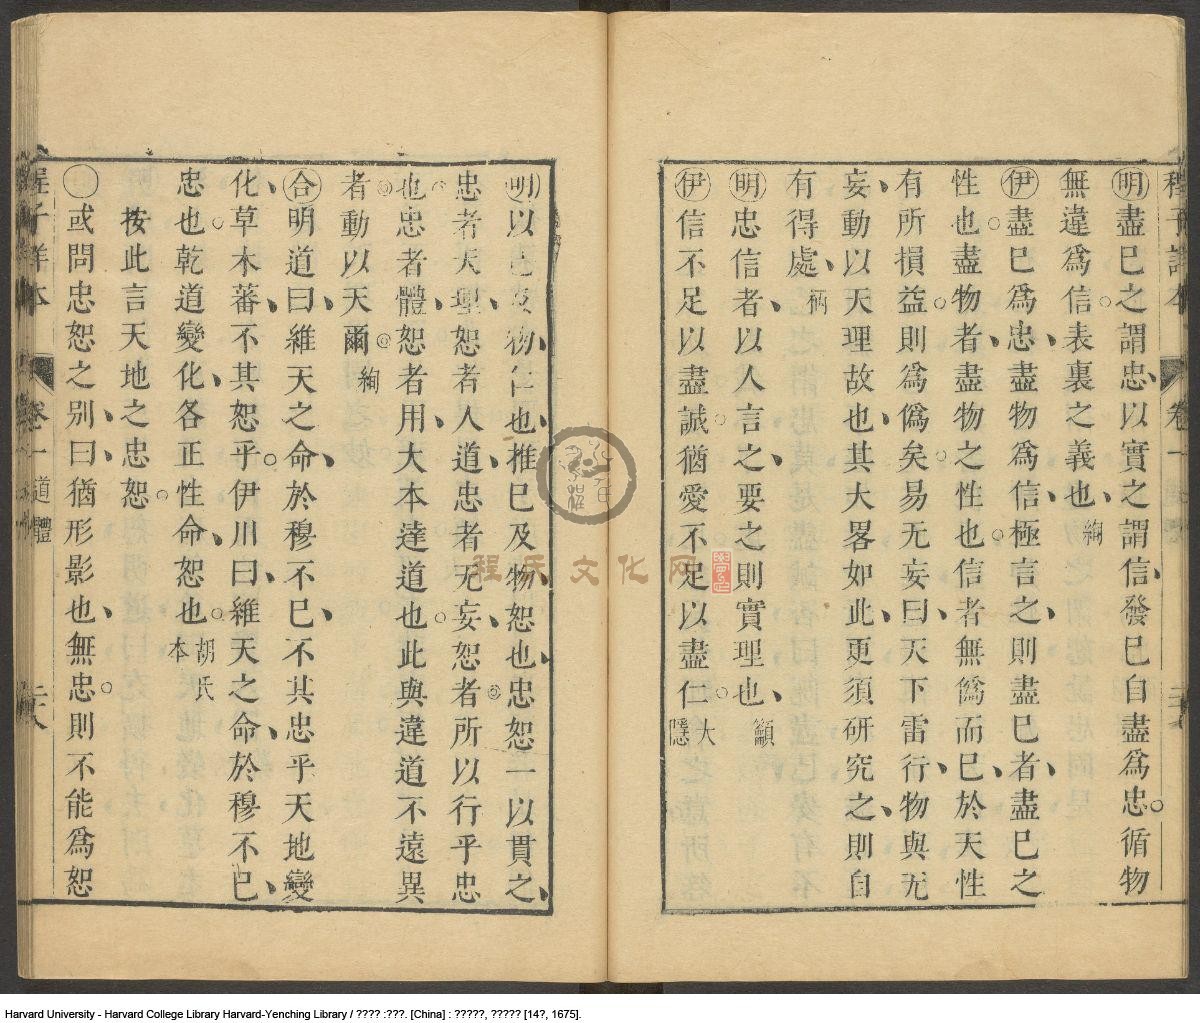 明盡已之謂忠以實之謂信發已自盡爲忠循物
無違爲信表裏之義也絢
伊盡已爲忠盡物爲信極言之則盡已者盡已之
性也盡物者盡物之性也信者無僞而已於天性
有所損益則爲僞矣易无妄曰天下雷行物與无
妄動以天理故也其大畧如此更須研究之則自
有得處柄
明忠信者以人言之要之則實理也籲
伊信不足以盡誠猶愛不足以盡仁大隱
明以已及物仁也推已及物恕也忠恕一以貫之
忠者天理恕者人道忠者无妄恕者所以行乎忠
也忠者體恕者用大本達道也此與違道不遠異
者動以天爾絢
合明道曰維天之命於穆不已不其忠乎天地變
化草木蕃不其恕乎伊川曰維天之命於穆不已
忠也乾道變化各正性命恕也胡氏本
按此言天地之忠恕
或問忠恕之別曰猶形影也無忠則不能爲恕
程子詳本 卷一 道體 二八
程氏文化网
Harvard University - Harvard College Library Harvard-Yenching Library / ???? :???. [China] : ?????, ????? [14?, 1675].